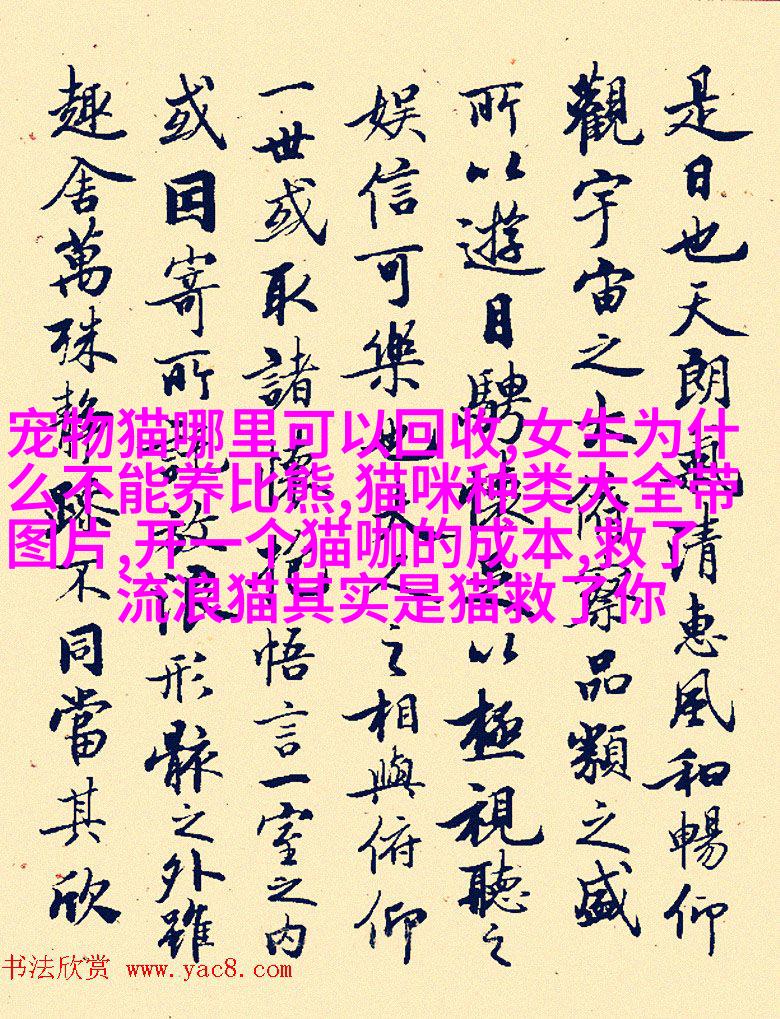 是日也天朗氣清惠風和暢仰
觀宇宙之大俯察品類之盛
所以遊目騁懷足以極視聽之
娛信可樂也夫人之相與俯仰
一世或取諸懷抱悟言一室之內
或因寄所託放浪形骸之外雖
趣舍萬殊靜躁不同當其欣
宠物猫哪里可以回收,女生为什
么不能养比熊,猫咪种类大全带
图片,开一个猫咖的成本,救了
流浪猫其实是猫救了你
书法欣赏 www.yac8.com